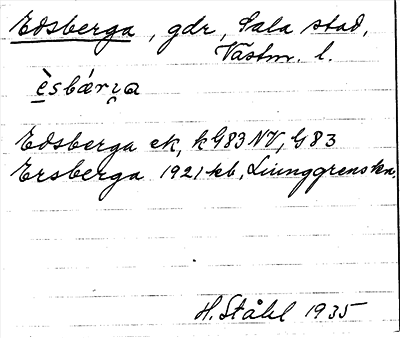 Edsberga, gdr, Sala stad,
Västm. l.
Edsberga ek, kG83NV, G83
Ersberga 1921 kb, Ljunggrenska.
H. Ståhl 1935